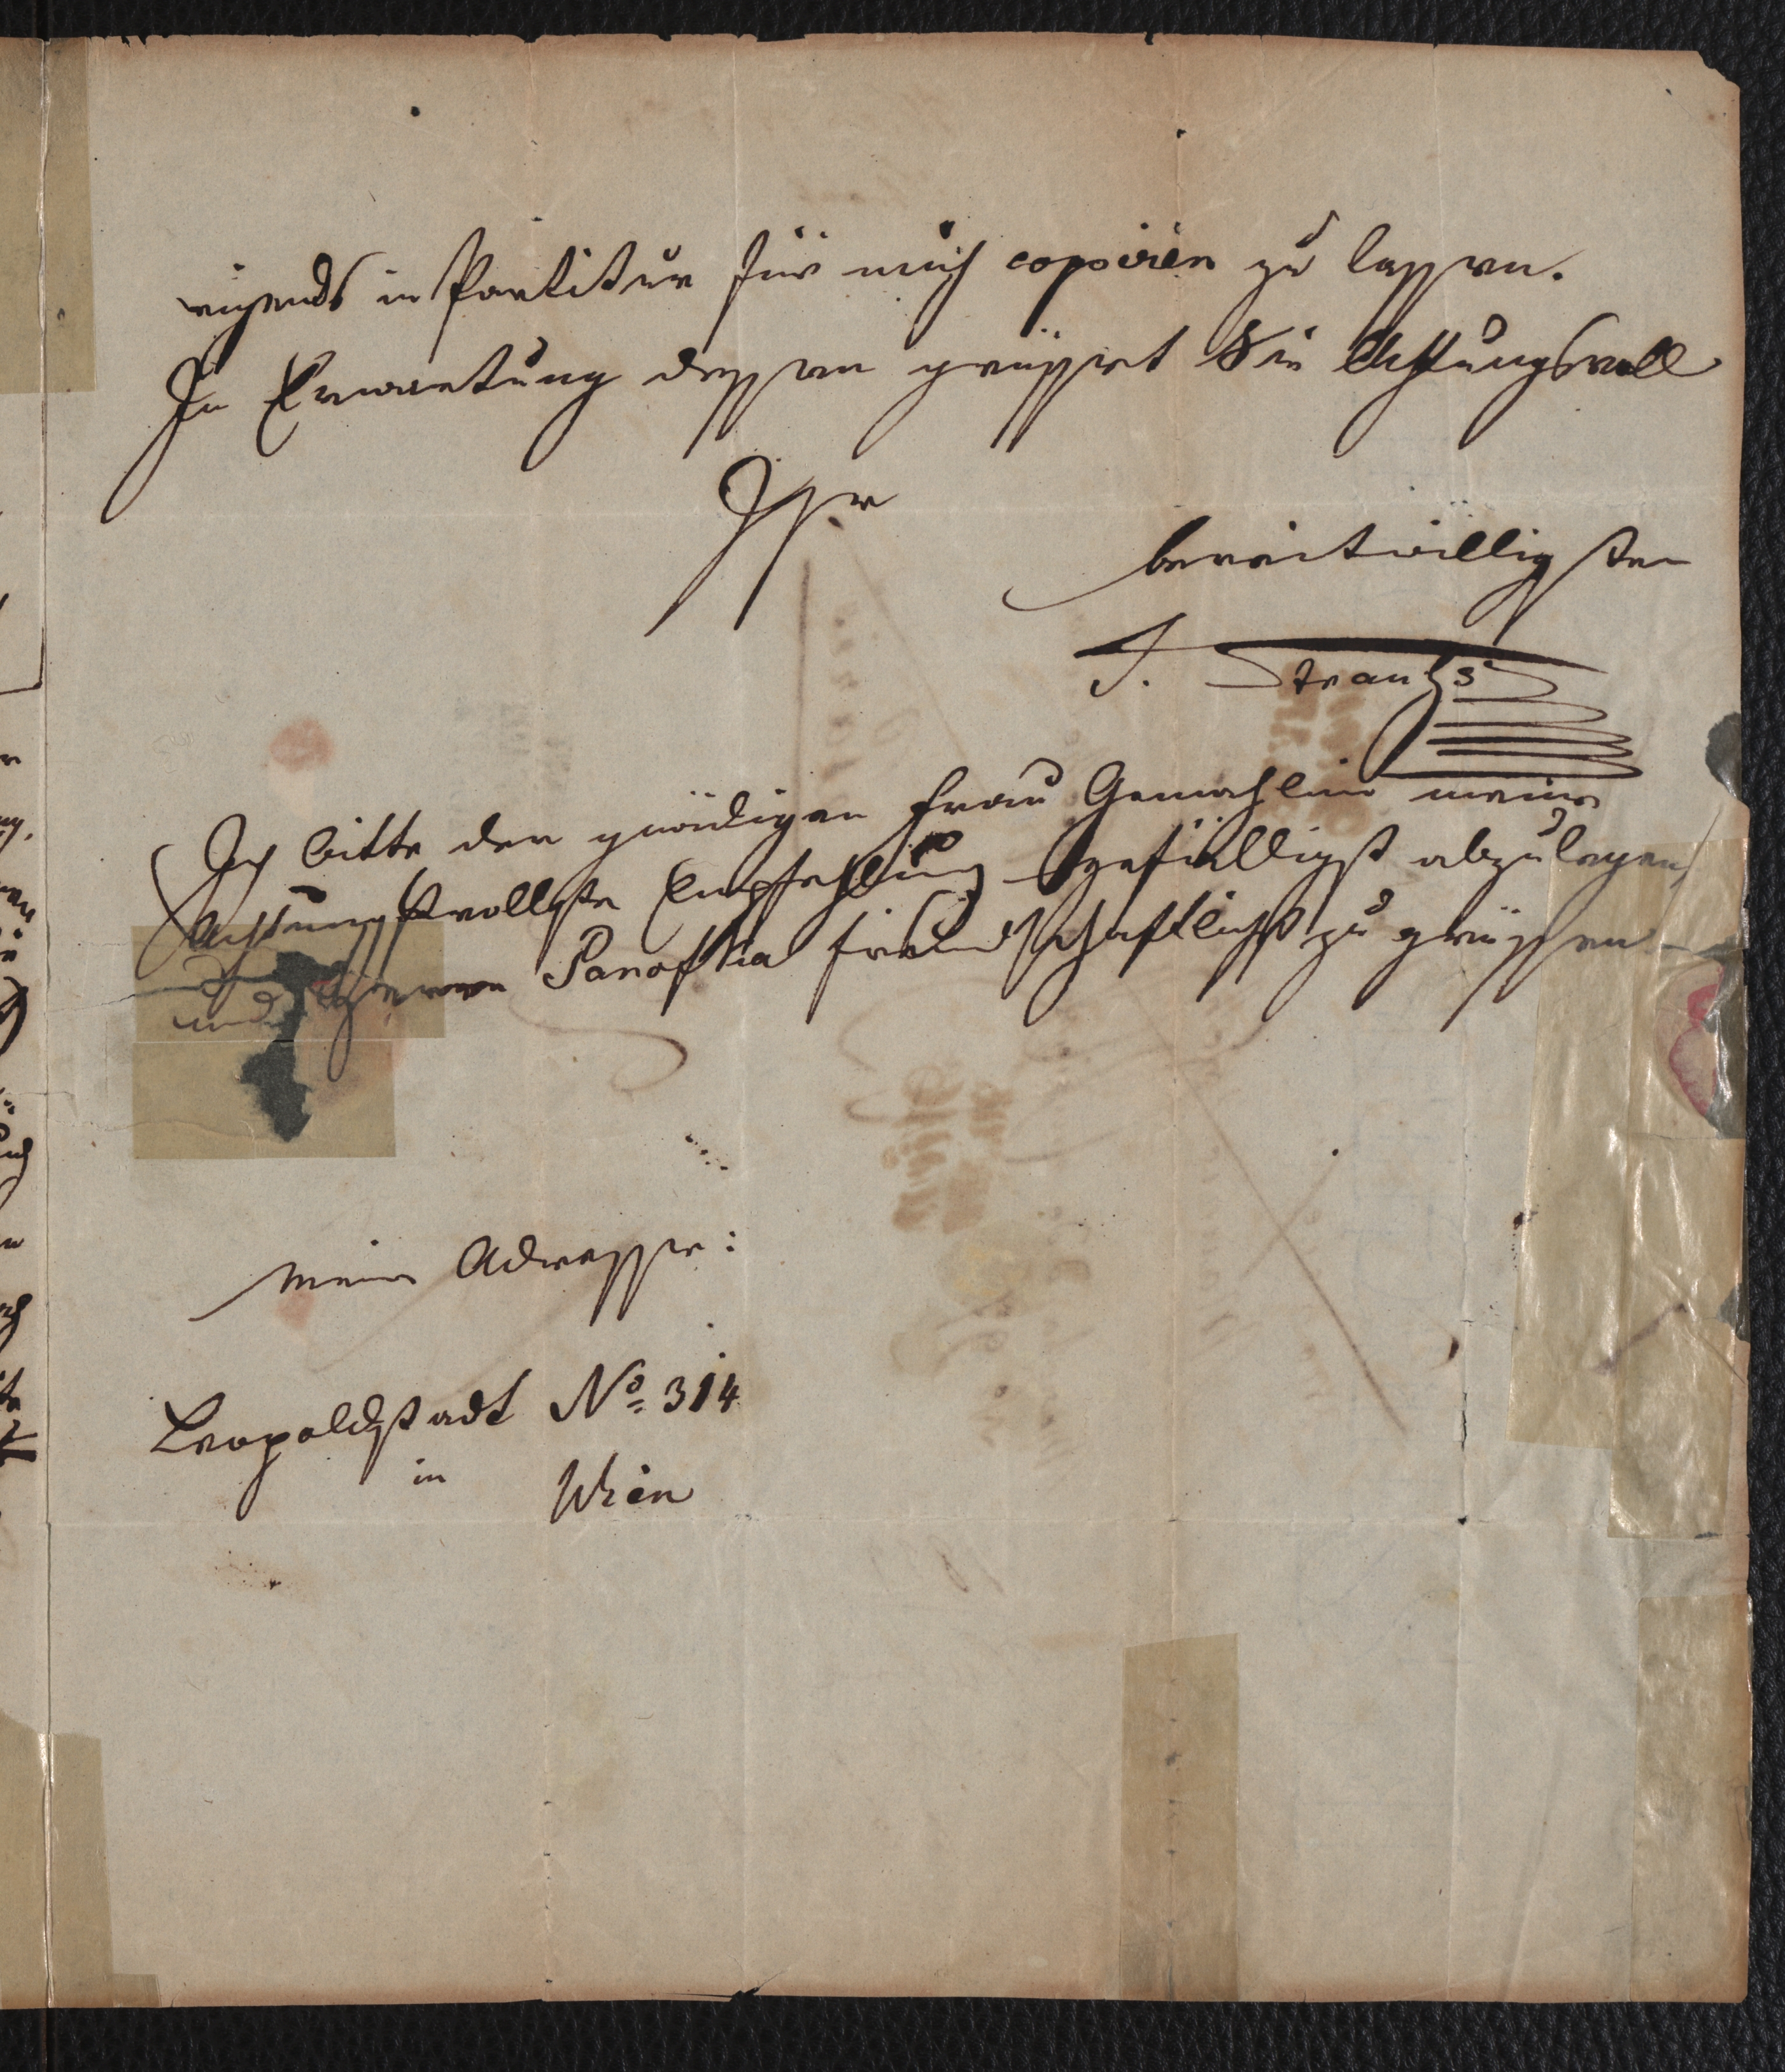 eigends in Partitur für mich copoiren zu lassen.
In Erwartung dessen grüsset Sie Achtungsvoll
Ihr
bereitwilligster
J. Strauß
Ich bitte der gnädigen Frau Gemahlin meine
Achtungsvollste Empfehlung gefälligst abzulegen,
und Herrn Panofka freundschaftlichst zu grüssen
Meine Adresse:
Leopoldstadt No. 314
in Wien